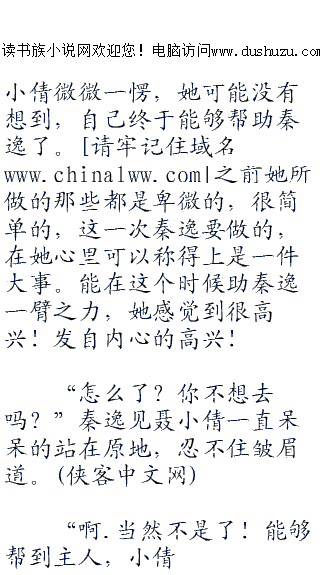 读书族小说网欢迎您！电脑访问www.dushuzu.com
小倩微微一愣，她可能没有
想到，自己终于能够帮助秦
逸了。[请牢记住域名
www.china1ww.com|之前她所
做的那些都是卑微的，很简
单的，这一次秦逸要做的，
在她心里可以称得上是一件
大事。能在这个时候助秦逸
一臂之力，她感觉到很高
兴！发自内心的高兴！
“怎么了？你不想去
吗？”秦逸见聂小倩一直呆
呆的站在原地，忍不住皱眉
道。(侠客中文网)
“啊.当然不是了！能够
帮到主人，小倩